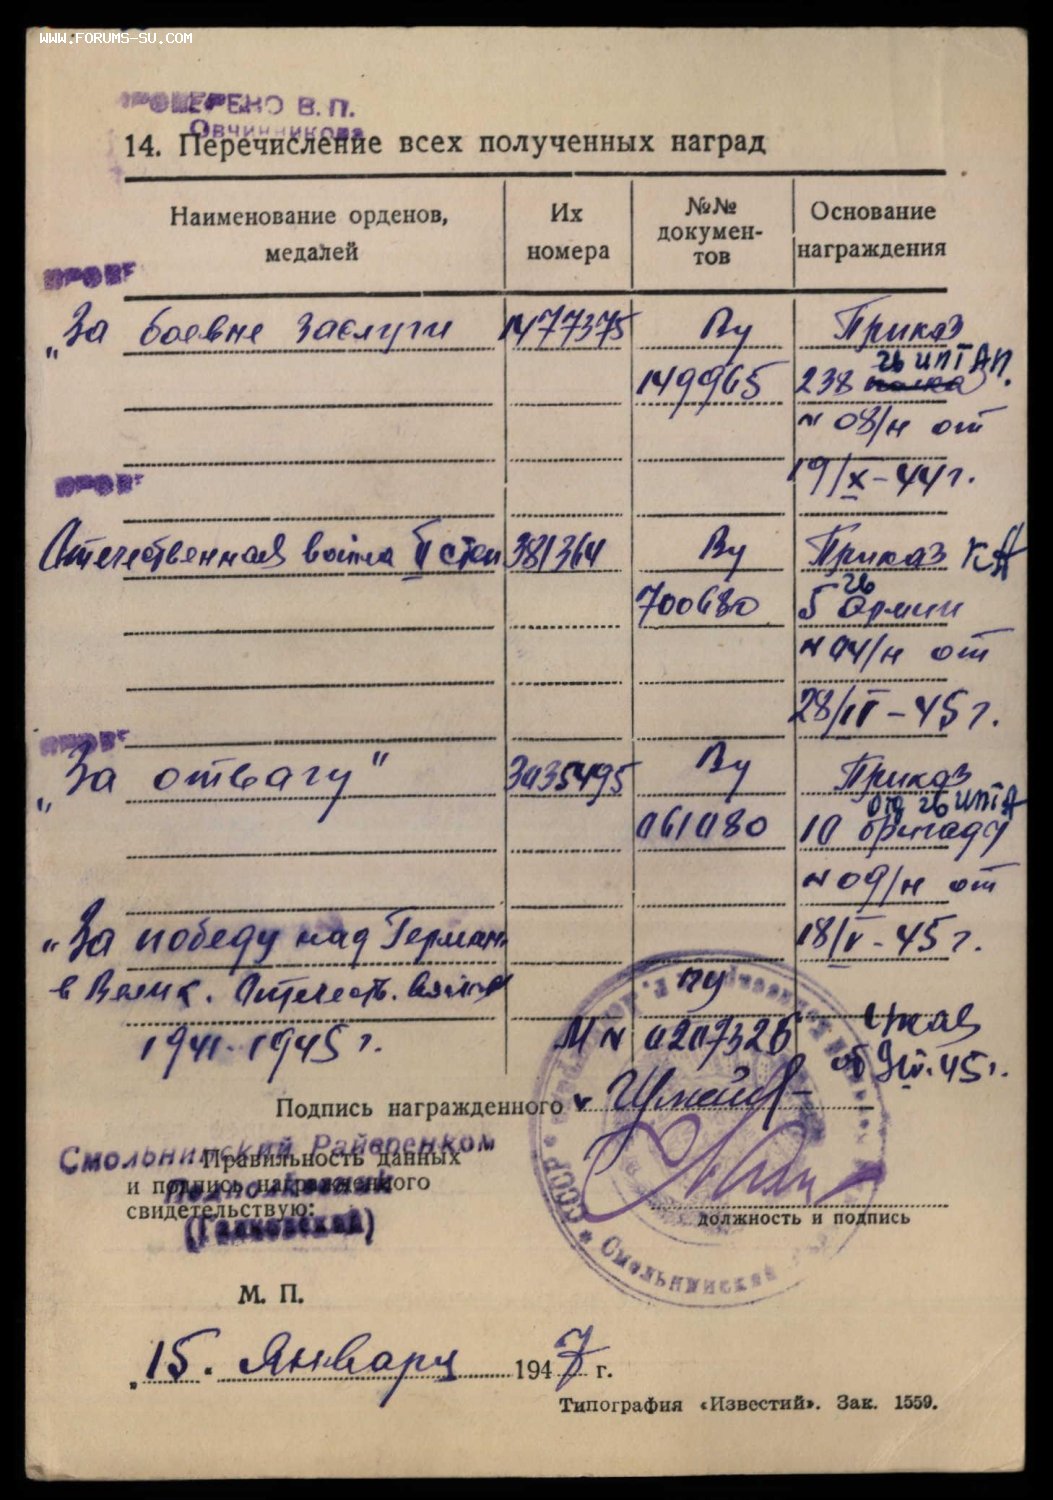 WWW.FORUMS-SU.COM
ПРОВЕРЕНО В. П.
Овчинникова
14. Перечисление всех полученных наград
Наименование орденов, медалей
Их номера
№№ докумен-тов
Основание награждения
ПРОВЕ
„За боевые заслуги 1477375 Ву Приказ
гв ИПТАП.
149965 238
N 08/н от
19/X-44 г.
Отечественная война II степ 381364 Ву Приказ КА
гв
700680 5 Армии
N 04/н от
28/IV-45 г.
„За отвагу" 3035495 Ву Приказ
отд гв ИПТА
061080 10 бригады
N 09/н от
„За победу над Герман. 18/V-45 г.
в Велик. Отечеств. войне ПУ
1941-1945 г. М N 0207326 Указ
от 9/V.45 г.
Подпись награжденного
Смольнинский Райвоенком
Правильность данных
и подпись награжденного
Подполковник
свидетельствую:
должность и подпись
СССР
Смольнинский
М. П.
„15. Января 1947 г.
Типография «Известий». Зак. 1559.